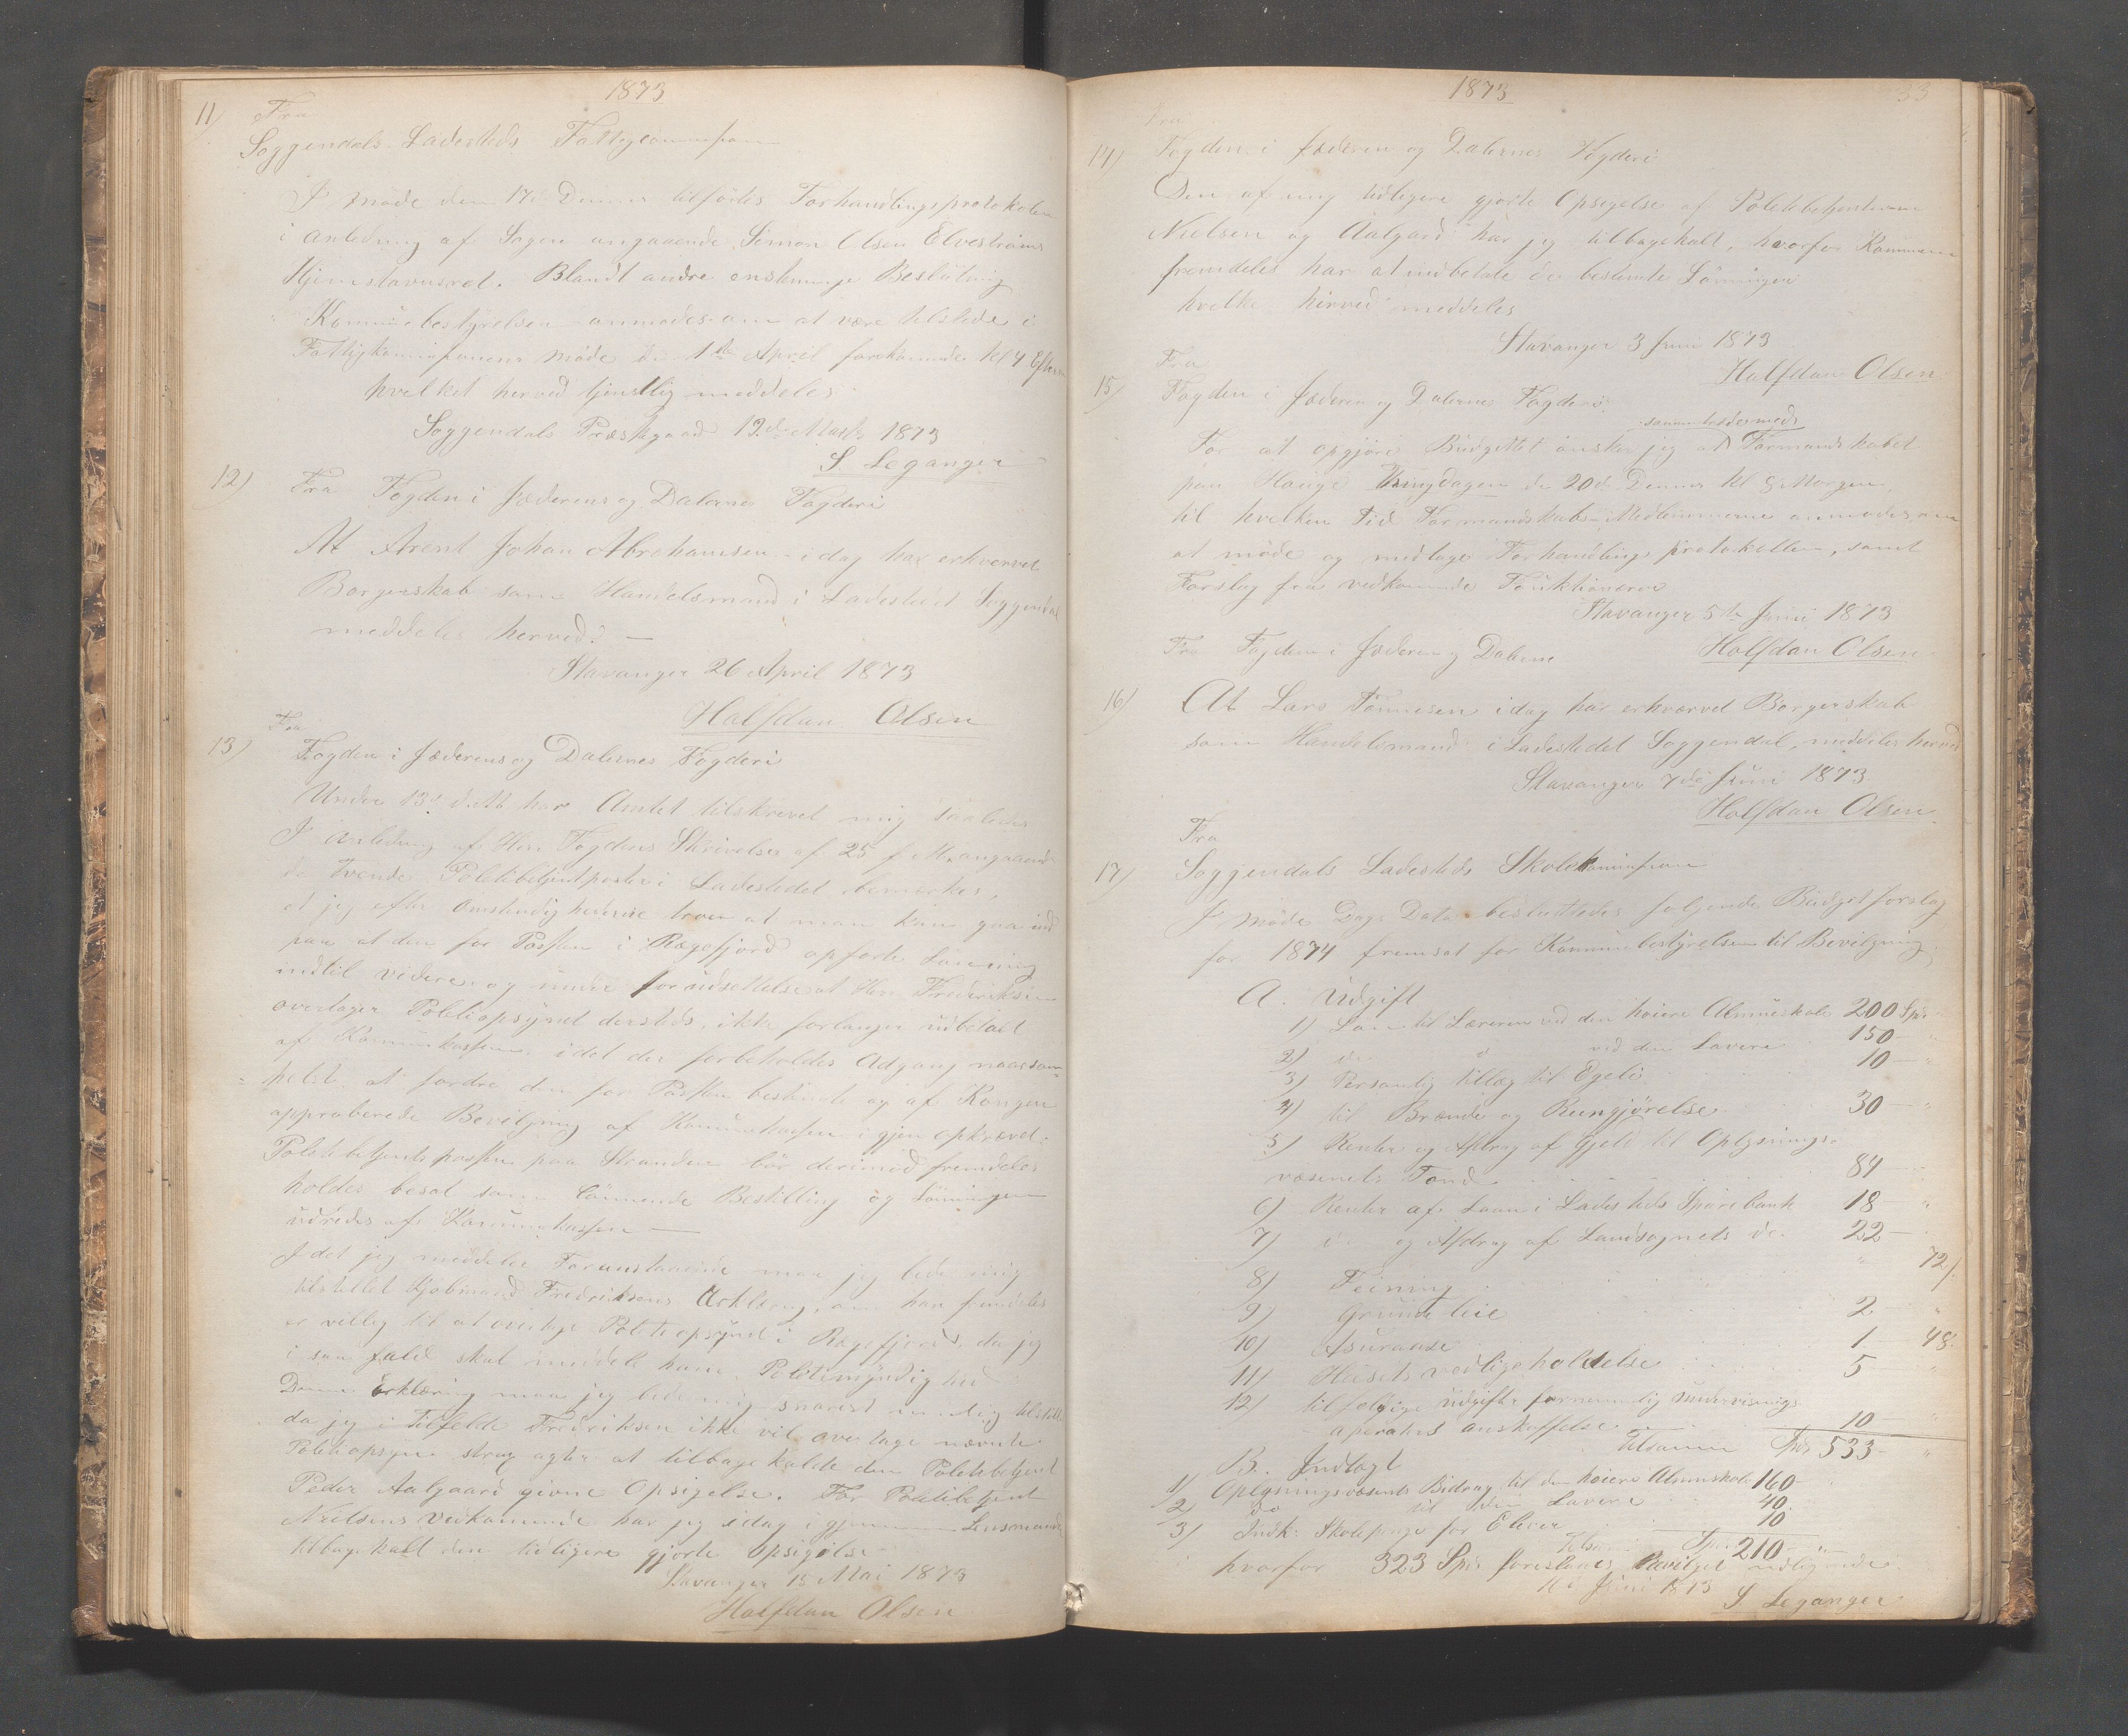 1873
11) Fra
Soggendals Ladesteds Fattigcommission
I Møde den 17de Dennes tilførtes Forhandlingsprotokolen
i Anledning af Sagen angaaende Simon Olsen Elvestrøms
Hjemstavnsret. Blandt andre enstemmige Beslutning
Kommunebestyrelsen anmodes om at være tilstede i
Fattigkommissionens Møde den 1ste April førstkommende Kl 4 Efterm
hvilket herved tjenstlig meddeles
Soggendals Præstegaard 19de Marts 1873
S. Leganger
12) Fra Fogden i Jæderens og Dalernes Fogderi
At Arent Johan Abrahamsen idag har erhvervet
Borgerskab som Handelsmand i Ladestedet Soggendal
meddeles herved. —
Stavanger 26 April 1873
Halfdan Olsen
Fra
13) Fogden i Jæderens og Dalernes Fogderi
Under 13de ds har Amtet tilskrevet mig saaledes
I Anledning af Herr Fogdens Skrivelse af 25 f. M. angaaende
de tvende Politibetjentposter i Ladestedet bemærkes,
at jeg efter Omstendighederne troer at man kan gaa ind
paa at den for Posten i Rægefjord opførte Lønning
indtil videre og under forudsettelse at Herr Fredriksen
overtager Politiopsynet dersteds, ikke forlanges udbetalt
af Kommunekassen idet der forbeholdes Adgang naarsom-
helst at fordre den for Posten bestemte og af Kongen
approberede Bevilgning af Kommunekassen igjen opkrævet.
Politibetjentposten paa Stranden bør derimod fremdeles
holdes besat som lønnende Bestilling og Lønningen
udredes af Kommunekassen —
Idet jeg meddeler Foranstaaende maa jeg bede mig
tilstillet Kjøbmand Fredriksens Erklæring, om han fremdeles
er villig til at overtage Politiopsynet i Rægefjord, da jeg
i saa fald skal meddele ham Politimyndighed
Denne Erklæring maa jeg bede mig snarest mulig tilstillet
da jeg i Tilfelde Fredriksen ikke vil overtage nævnte
Politiopsyn strax agter at tilbagekalde den Politibetjent
Peder Aalgaard givne Opsigelse. For Politibetjent
Nielsens Vedkommende har jeg idag igjennem Lensmanden
tilbagekalt den tidligere gjorte Opsigelse
Stavanger 15 Mai 1873
Halfdan Olsen
1873
33
Fra
14) Fogden i Jæderen og Dalernes Fogderi
Den af mig tidligere gjorte Opsigelse af Politibetjenterne
Nielsen og Aalgard har jeg tilbagekalt, hvorfor Kommunen
fremdeles har at indbetale de bestemte Lønninger
hvilke herved meddeles
Stavanger 3 Juni 1873
Halfdan Olsen
Fra
15) Fogden i Jæderen og Dalernes Fogderi
sammentrædermeds
For at opgjøre Budgettet ønsker jeg at Formandskabet
paa Hauge den 20de Dennes Kl 8 Morgen
til hvilken Tid Formandskabs-Medlemmerne anmodes om
at møde og medtage Forhandlings protokollen, samt
Forslag fra vedkommende Funktionærer
Stavanger 5te Juni 1873
Halfdan Olsen
Fra Fogden i Jæderen og Dalerne
16) At Lars Tønnesen idag har erhvervet Borgerskab
som Handelsmand i Ladestedet Soggendal, meddeles herved
Stavanger 7de Juni 1873
Halfdan Olsen
Fra
17) Soggendals Ladesteds Skolekommission
I Møde Dags Dato besluttedes følgende Budgetforslag
for 1874 fremsat for Kommunebestyrelsen til Bevilgning
A. Udgift
1) Løn til Læreren ved den høiere Almueskole 200 Spd "
2) do d ved den Lavere 150 "
3) Personlig tillæg til Egeli 10 — "
4) til Brænde og Rengjørelse 30 — "
5) Renter og Afdrag af Gjeld til Oplysnings-
væsenets Fond 84 —
6) Renter af Laan i Ladesteds Sparebank 18 — "
7) d. og Afdrag af Landsognets do. 22 —
8) Feining " 72 /
9) Grundleie 2 "
10) Asurance 1 — 48
11) Husets vedligeholdelse 5 "
12) tilfeldige Udgifter fornemmelig Undervisnings
aperaters anskaffelse 10 — "
tilsamen Spd 533 — "
B. Indtegt
1) Oplysningsvæsenets Bidrag til den høiere Almueskole 160
2) do til den Lavere 40
3) Indk: Skolepenge for Elever 10
tilsam Spd 210 — "
hvorfor 323 Spd foreslaaes Bevilget udlignede.
Juni 1873
S Leganger